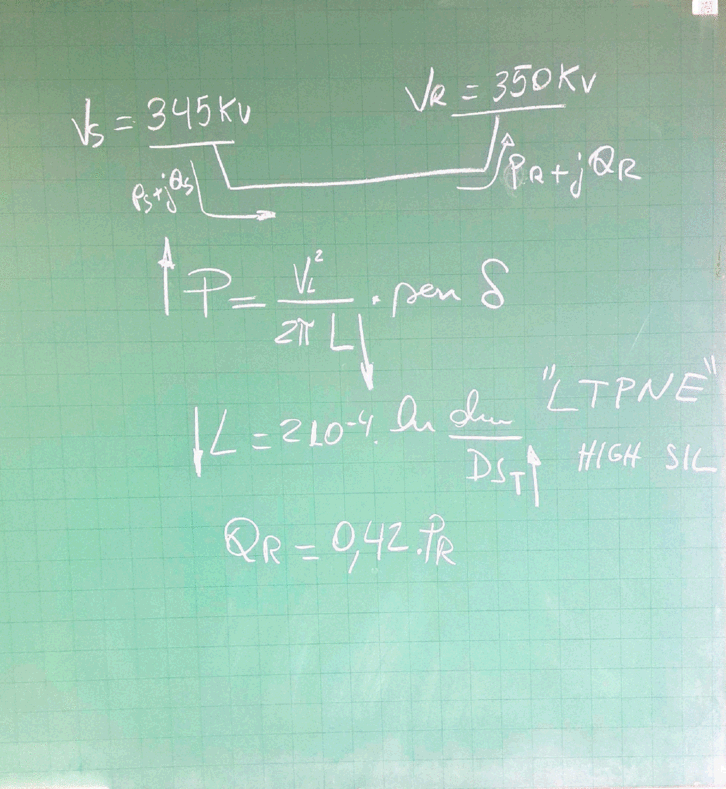 VS = 345KV
VR = 350KV
PS+jQS
PR+jQR
P = VL² / 2π L . sen δ
L = 210⁻⁴. ln dm / DST
"LTPNE"
HIGH SIL
QR = 0,42.PR